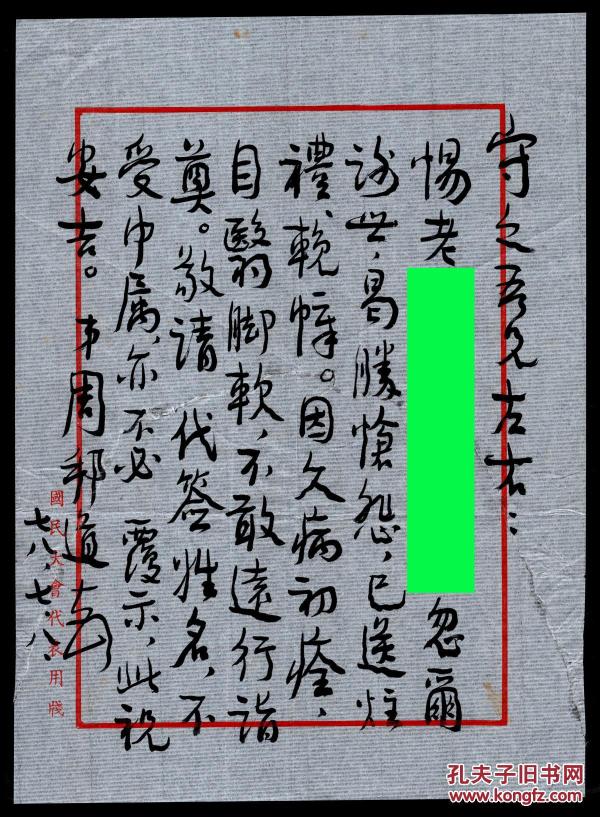 守之吾兄左右：
惕老
忽爾
謝世，曷勝愴怨，已送炷
禮、輓幛。因久病初痊，
目翳脚軟，不敢遠行詣
奠。敬請 代簽姓名，不
受 亦不必 覆示，此祝
安吉。 弟周邦道
七八、七、八、
國民大會代表用牋
孔夫子旧书网
www.kongfz.com